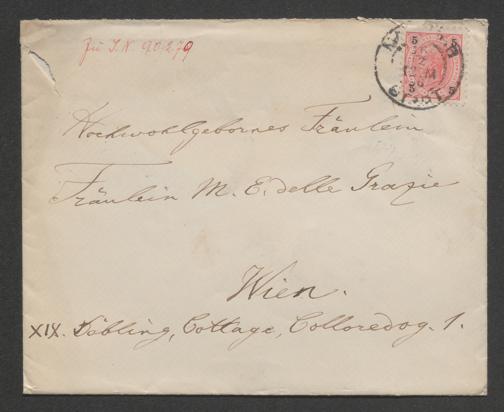 Zu I.N. 90.279
Hochwohlgebornes Fräulein
Fräulein M. E. delle Grazie
Wien.
XIX. Döbling, Cottage, Colloredog. 1.